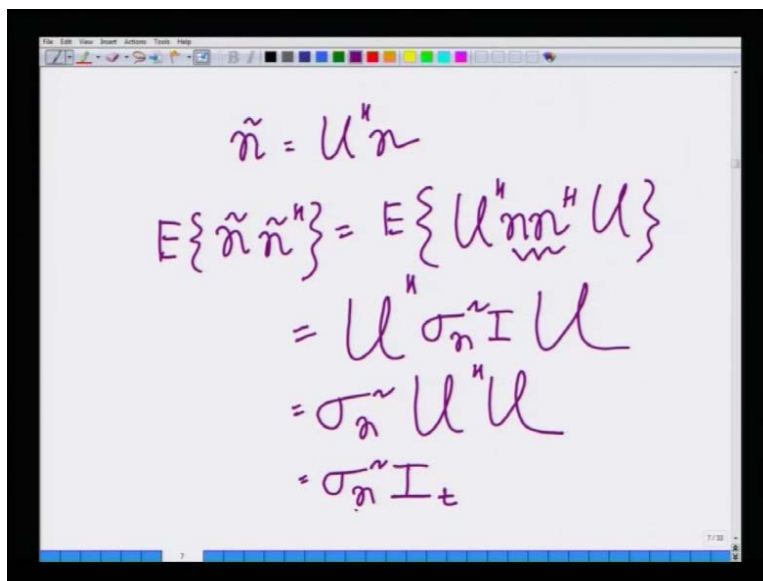 File Edit View Insert Actions Tools Help
B I
ñ = Uᴴn
E{ñ ñᴴ} = E{Uᴴnnᴴ U}
= Uᴴ σₙ² I U
= σₙ² UᴴU
= σₙ² Iₜ
7/33
7